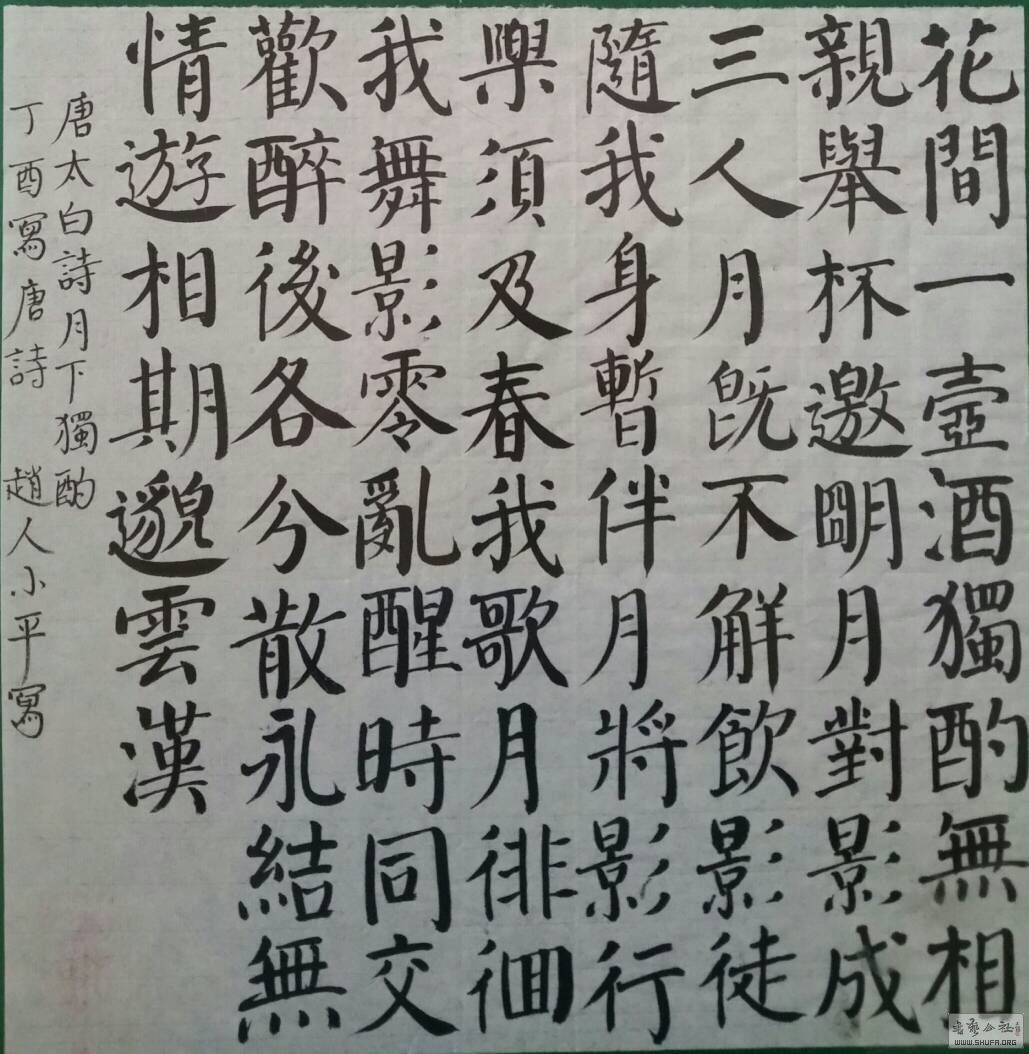 花間一壺酒獨酌無相
親舉杯邀明月對影成
三人月既不解飲影徒
隨我身暫伴月將影行
樂須及春我歌月徘徊
我舞影零亂醒時同交
歡醉後各分散永結無
情遊相期邈雲漢
唐太白詩月下獨酌
丁酉寫唐詩 趙人小平寫
WWW.SHUFA.ORG